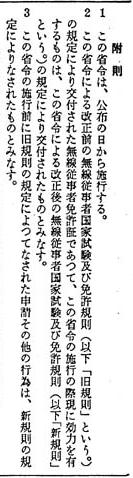 附　則
1　この省令は、公布の日から施行する。
2　この省令による改正前の無線従事者国家試験及び免許規則（以下「旧規則」という。）
の規定により交付された無線従事者免許証であつて、この省令の施行の際現に効力を有
するものは、この省令による改正後の無線従事者国家試験及び免許規則（以下「新規則」
という。）の規定により交付されたものとみなす。
3　この省令の施行前に旧規則の規定によつてなされた申請その他の行為は、新規則の規
定によりなされたものとみなす。